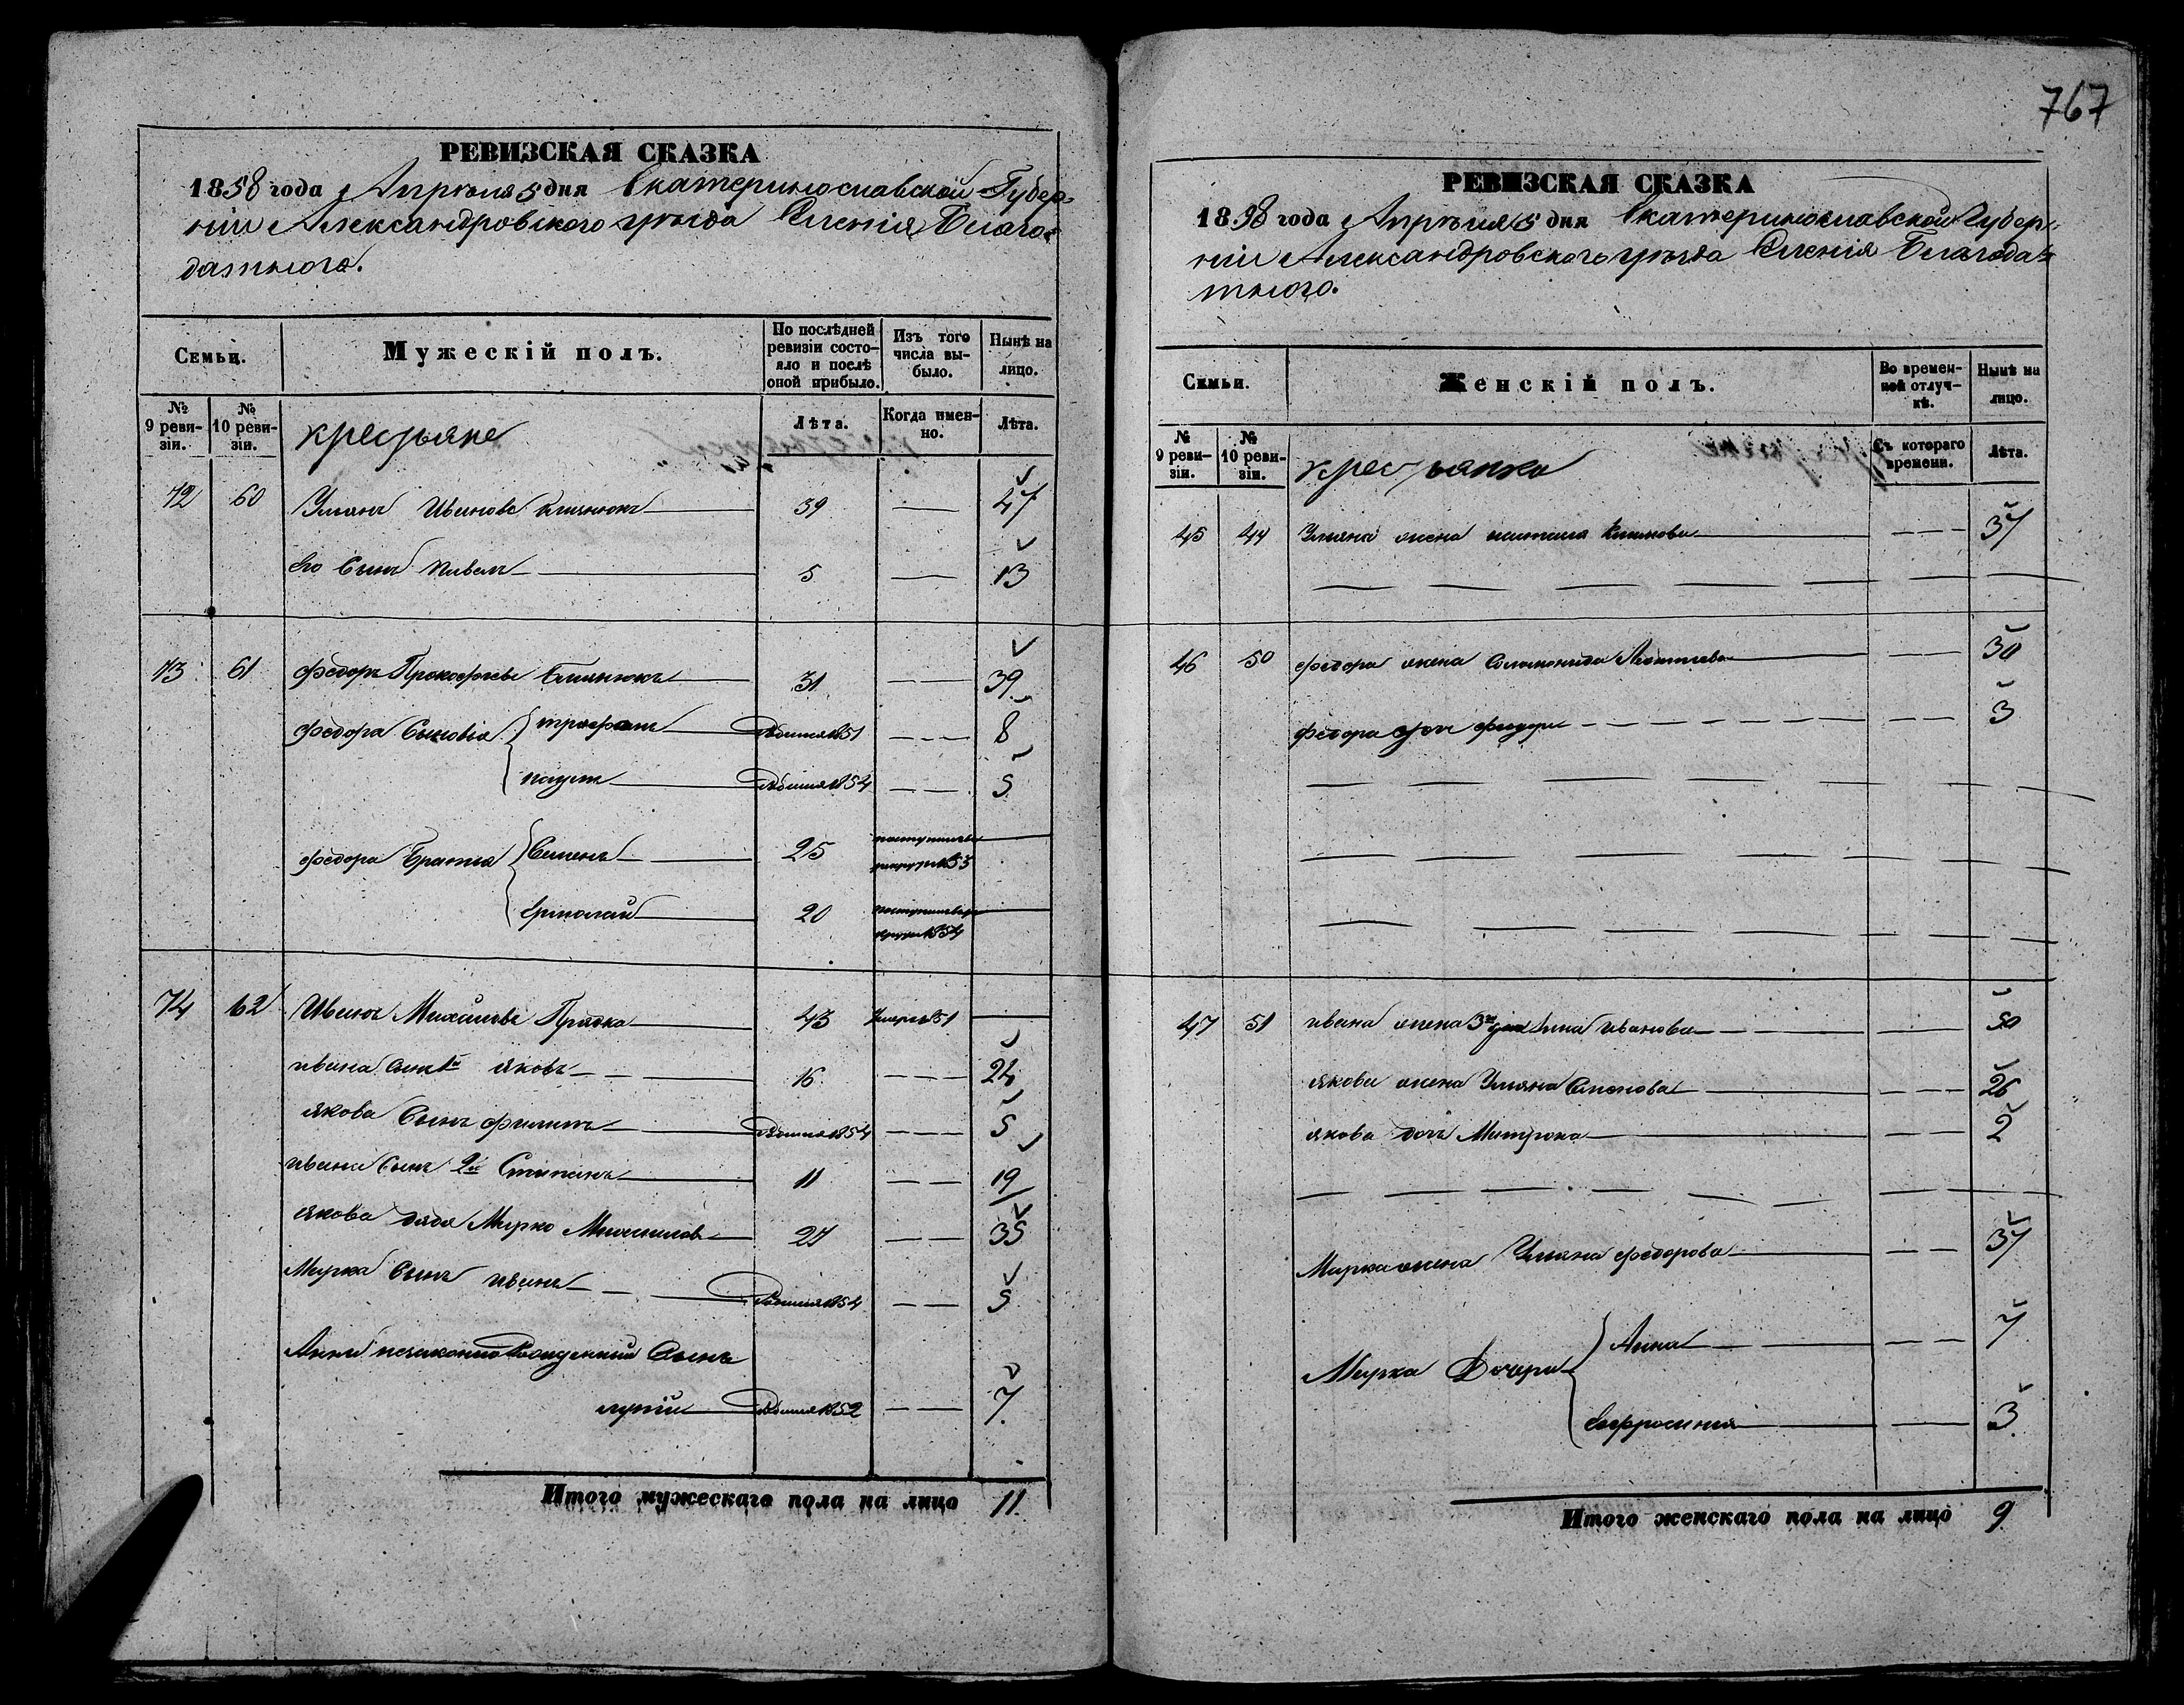 РЕВИЗСКАЯ СКАЗКА
1858 года Апреля 5 дня Екатеринославской Губер-
ніи Александровского уезда Селенія Благо-
датного.
Семьи.
Мужескій полъ.
По послѣдней ревизіи состояло и послѣ оной прибыло.
Изъ того числа выбыло.
Нынѣ на лицо.
№ 9 ревизіи.
№ 10 ревизіи.
крестьяне
Лѣта.
Когда именно.
Лѣта.
72 60 Ульянъ Ивановъ 39 47
его Сынъ Павелъ 5 13
73 61 Федоръ Прокофьевъ 31 39
Федора Сыновья Трофимъ Родился 1851 8
Наумъ Родился 1854 5
Федора Братья Семенъ 25 поступилъ в рекруты 1853
Ермолай 20 поступилъ в рекруты 1854
74 62 Иванъ Михайловъ Прядка 43 умеръ 1851
Ивана Сынъ 1й Яковъ 16 24
Якова Сынъ Филипъ Родился 1854 5
Ивана Сынъ 2й Степанъ 11 19
Якова дядя Марко Михайловъ 27 35
Марка Сынъ Иванъ Родился 1854 5
Анны незаконно Рожденный Сынъ
Родился 1852 7
Итого мужескаго пола на лицо 11.
767
РЕВИЗСКАЯ СКАЗКА
1858 года Апреля 5 дня Екатеринославской Губер-
ніи Александровского уезда Селенія Благода-
тного.
Семьи.
Женскій полъ.
Во временной отлучкѣ.
Нынѣ на лицо.
№ 9 ревизіи.
№ 10 ревизіи.
крестьянка
Съ котораго времени.
Лѣта.
45 44 Ульяна жена 37
46 50 Федора жена Соломонида 30
Федора дочь 3
47 51 Ивана жена Анна Иванова 50
Якова жена Ульяна Семенова 26
Якова дочь Матрона 2
Марка жена Ульяна Федорова 37
Марка Дочери Анна 7
Евфросинія 3
Итого женскаго пола на лицо 9